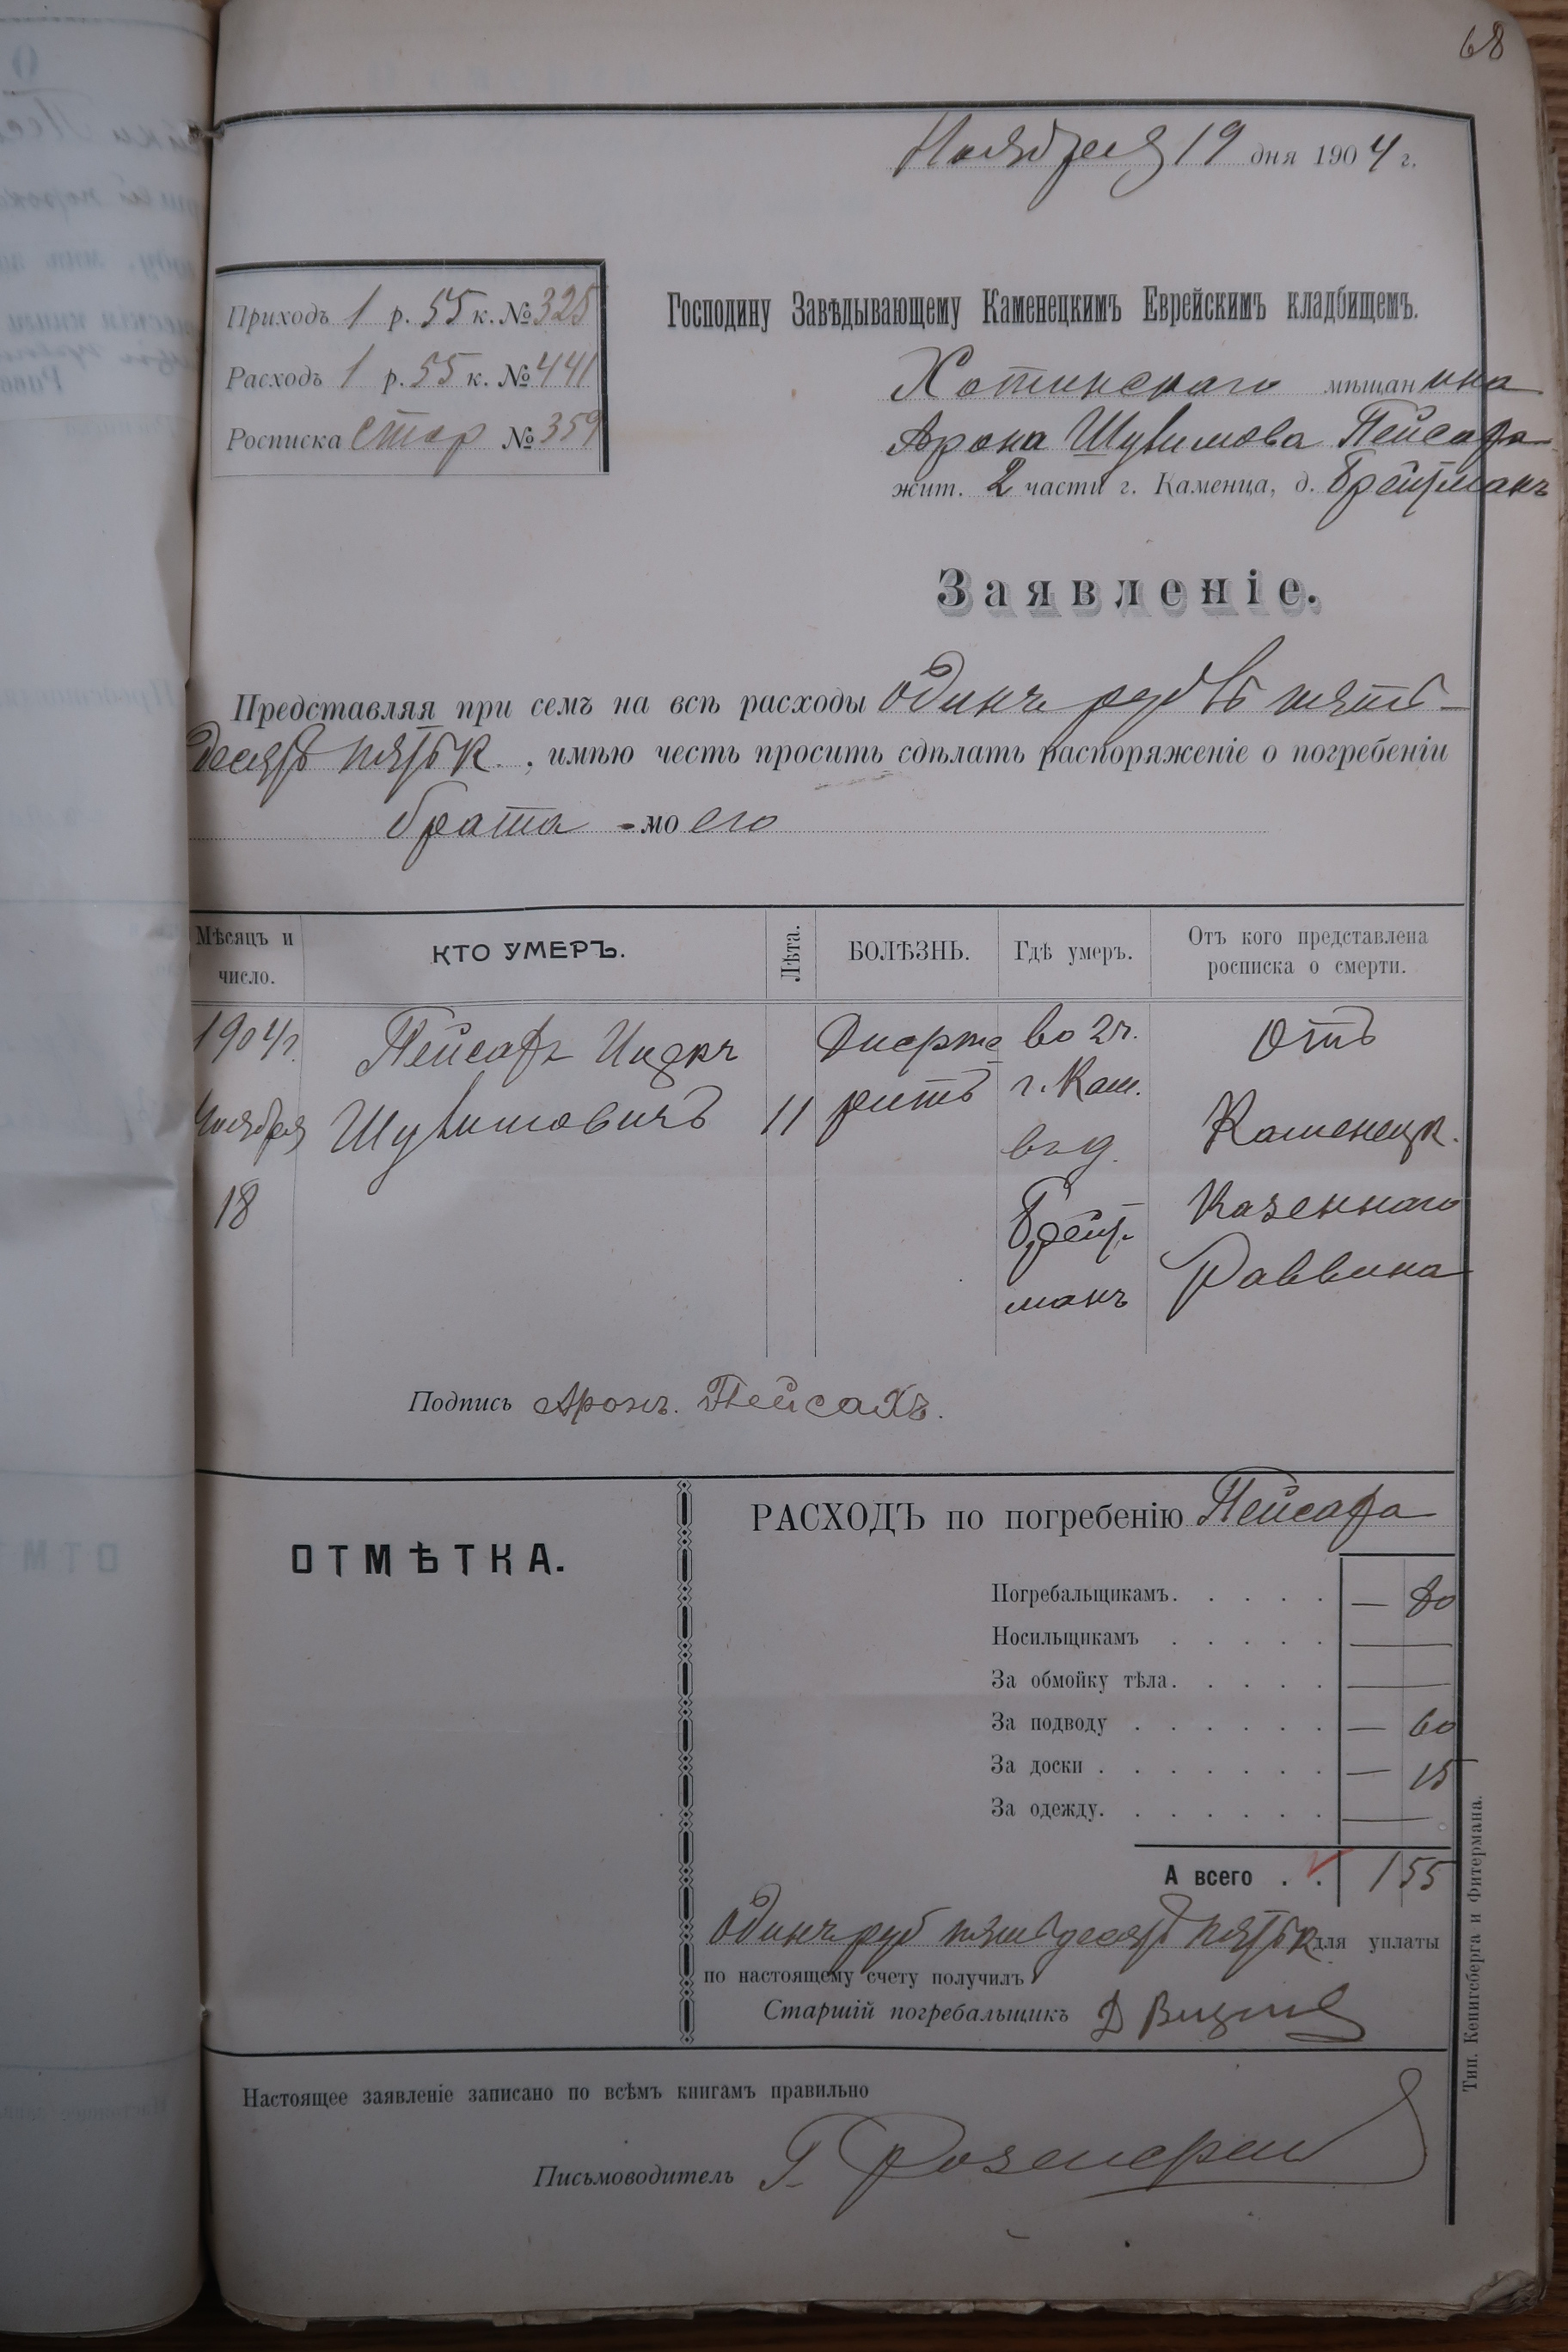 68
Ноября 19 дня 1904 г.
Приходъ 1 р. 55 к. № 325
Расходъ 1 р. 55 к. № 441
Росписка стар № 359
Господину Завѣдывающему Каменецкимъ Еврейскимъ кладбищемъ.
Хотинскаго мѣщанина
Арона Шулимова Пейсаха
жит. 2 части г. Каменца, д. Бройтманъ
Заявленіе.
Представляя при семъ на всѣ расходы одинъ руб пять-
десятъ пять к., имѣю честь просить сдѣлать распоряженіе о погребеніи
брата моего
Мѣсяцъ и число.
КТО УМЕРЪ.
Лѣта.
БОЛѢЗНЬ.
Гдѣ умеръ.
Отъ кого представлена росписка о смерти.
1904 г. Ноября 18
Пейсахъ Ицекъ Шулимовичъ
11
Дифтеритъ
во 2 ч. г. Кам. въ д. Бройтманъ
Отъ Каменецк. Казеннаго Раввина
Подпись Аронъ. Пейсахъ.
ОТМѢТКА.
РАСХОДЪ по погребенію Пейсаха
Погребальщикамъ. . . . . — 80
Носильщикамъ . . . . . —
За обмойку тѣла. . . . . —
За подводу . . . . . . — 60
За доски . . . . . . . — 15
За одежду. . . . . . . —
А всего . . 1 55
одинъ руб пятьдесятъ пять к для уплаты
по настоящему счету получилъ
Старшій погребальщикъ Д
Настоящее заявленіе записано по всѣмъ книгамъ правильно
Письмоводитель Г.
Тип. Кенигсберга и Фитермана.